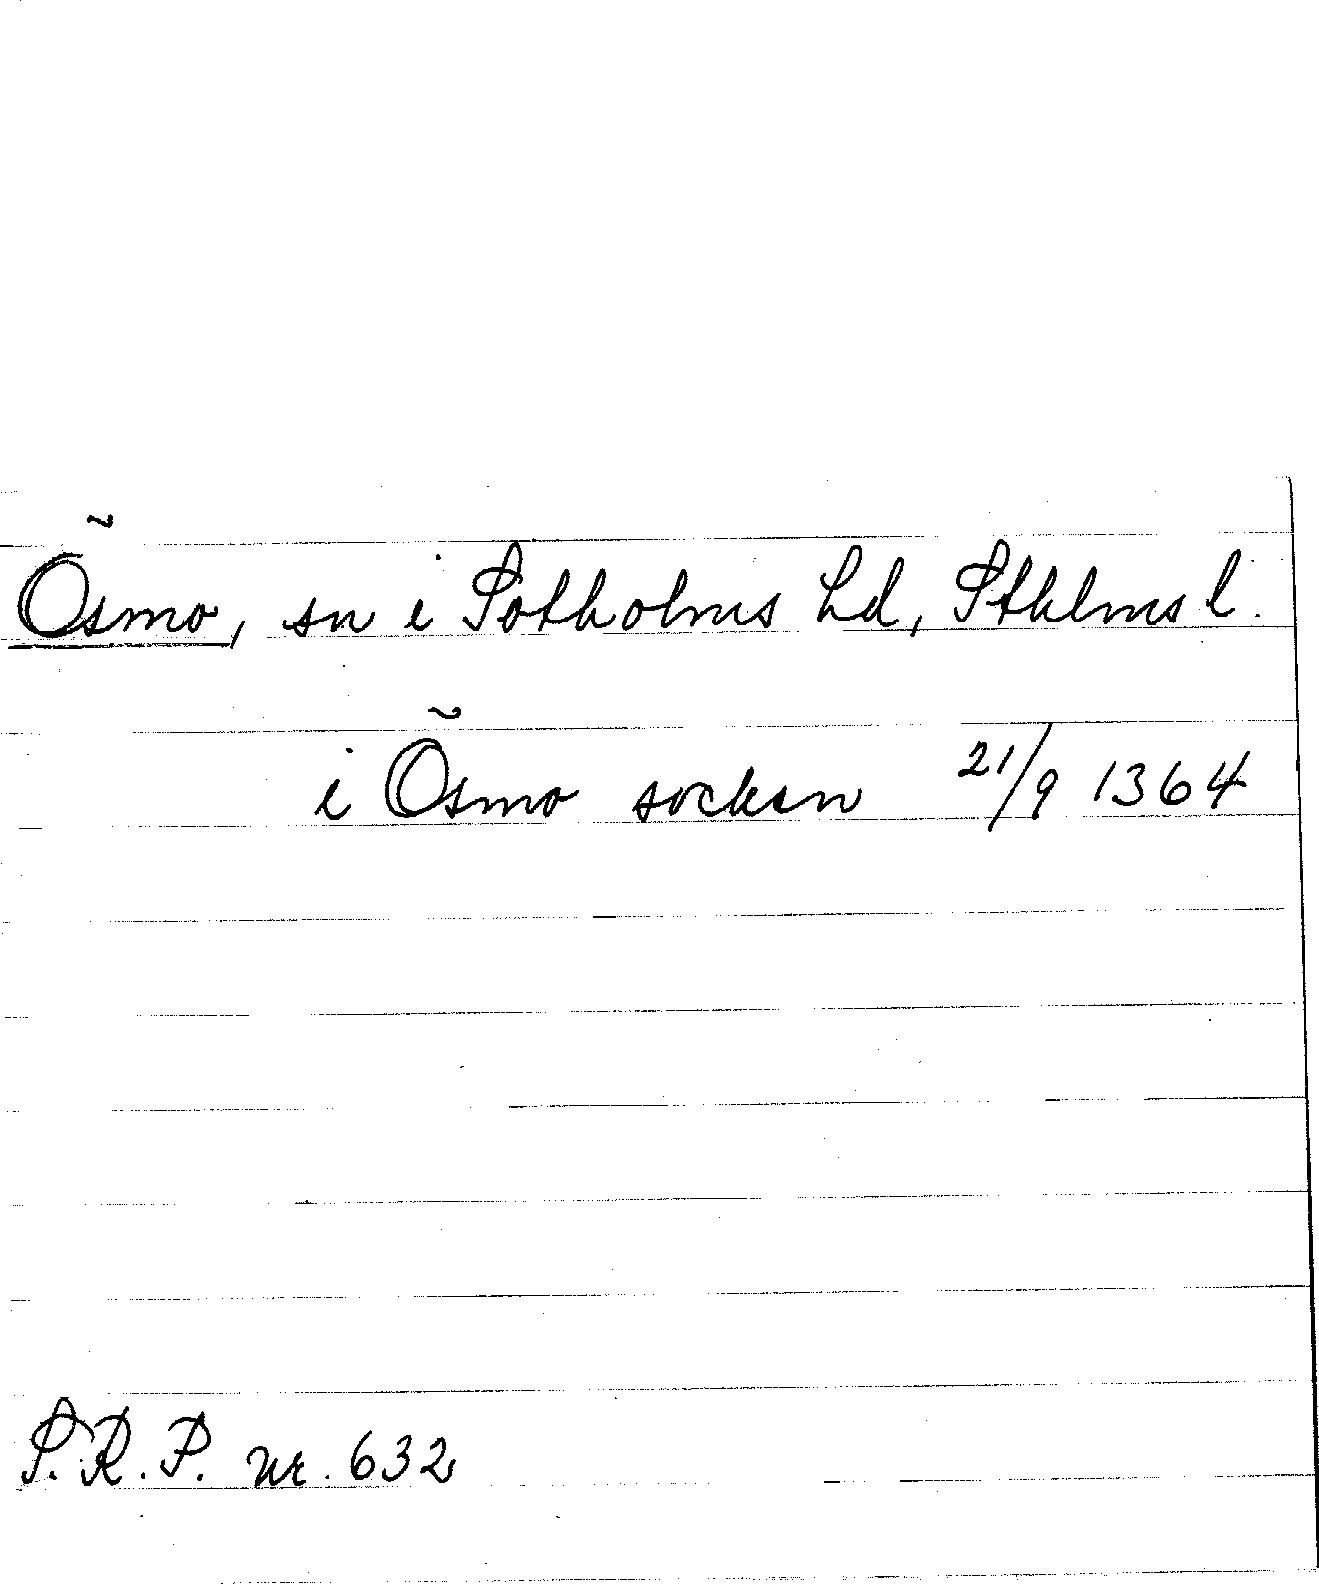 Ösmo, sn i Sotholms hd, Sthlms l.
i Ösmo socken 21/9 1364
S.R.P. nr. 632